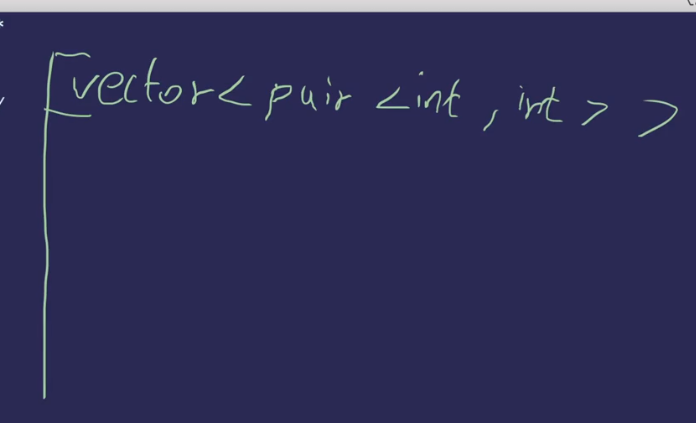 vector< pair <int, int> >